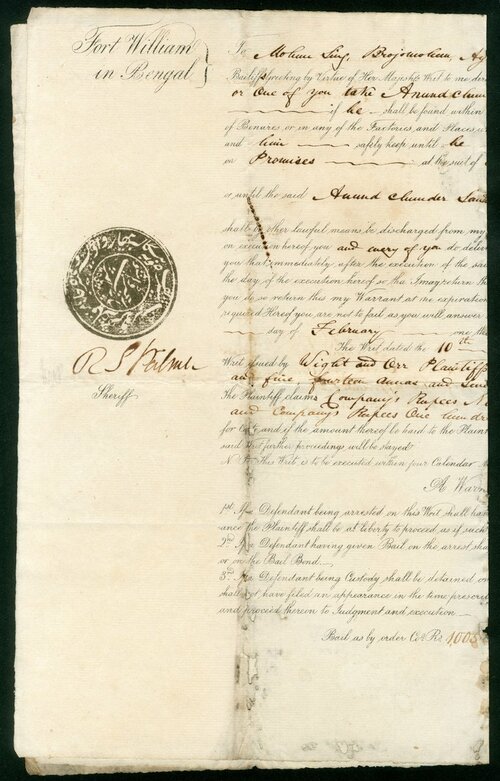 Fort William
in Bengal
To Mohun Sing, Brojomohun,
Bailiffs greeting by Virtue of Her Majesty's Writ to me
or One of you take Anund
if he shall be found within
of Benares or in any of the Factories and Places
and him safely keep until he
on Promises at the suit of
or until the said Anund Chunder
shall by other lawful means be discharged from my
on execution hereof you and every of you do
you that immediately after the execution of the
the day of the execution hereof so that I may return
you do so return this my Warrant at the expiration
required Hereof you are not to fail as you will answer
day of February one
The Writ dated the 10th
Writ issued by Wight and Orr Plaintiff
and five, fourteen annas and
The Plaintiff claims Company's Rupees
and Company's Rupees One
for and if the amount thereof be paid to the
said further proceedings will be stayed
N. This Writ is to be executed within four Calendar
R S Palmer
Sheriff
1st. Defendant being arrested on this Writ shall
the Plaintiff shall be at liberty to proceed as if such
2nd. Defendant having given Bail on the arrest
or on the Bail Bond
3rd. Defendant being Custody shall be detained on
shall not have filed an appearance in the time
and proceed thereon to Judgment and execution
Bail as by order Co's Rs. 1005